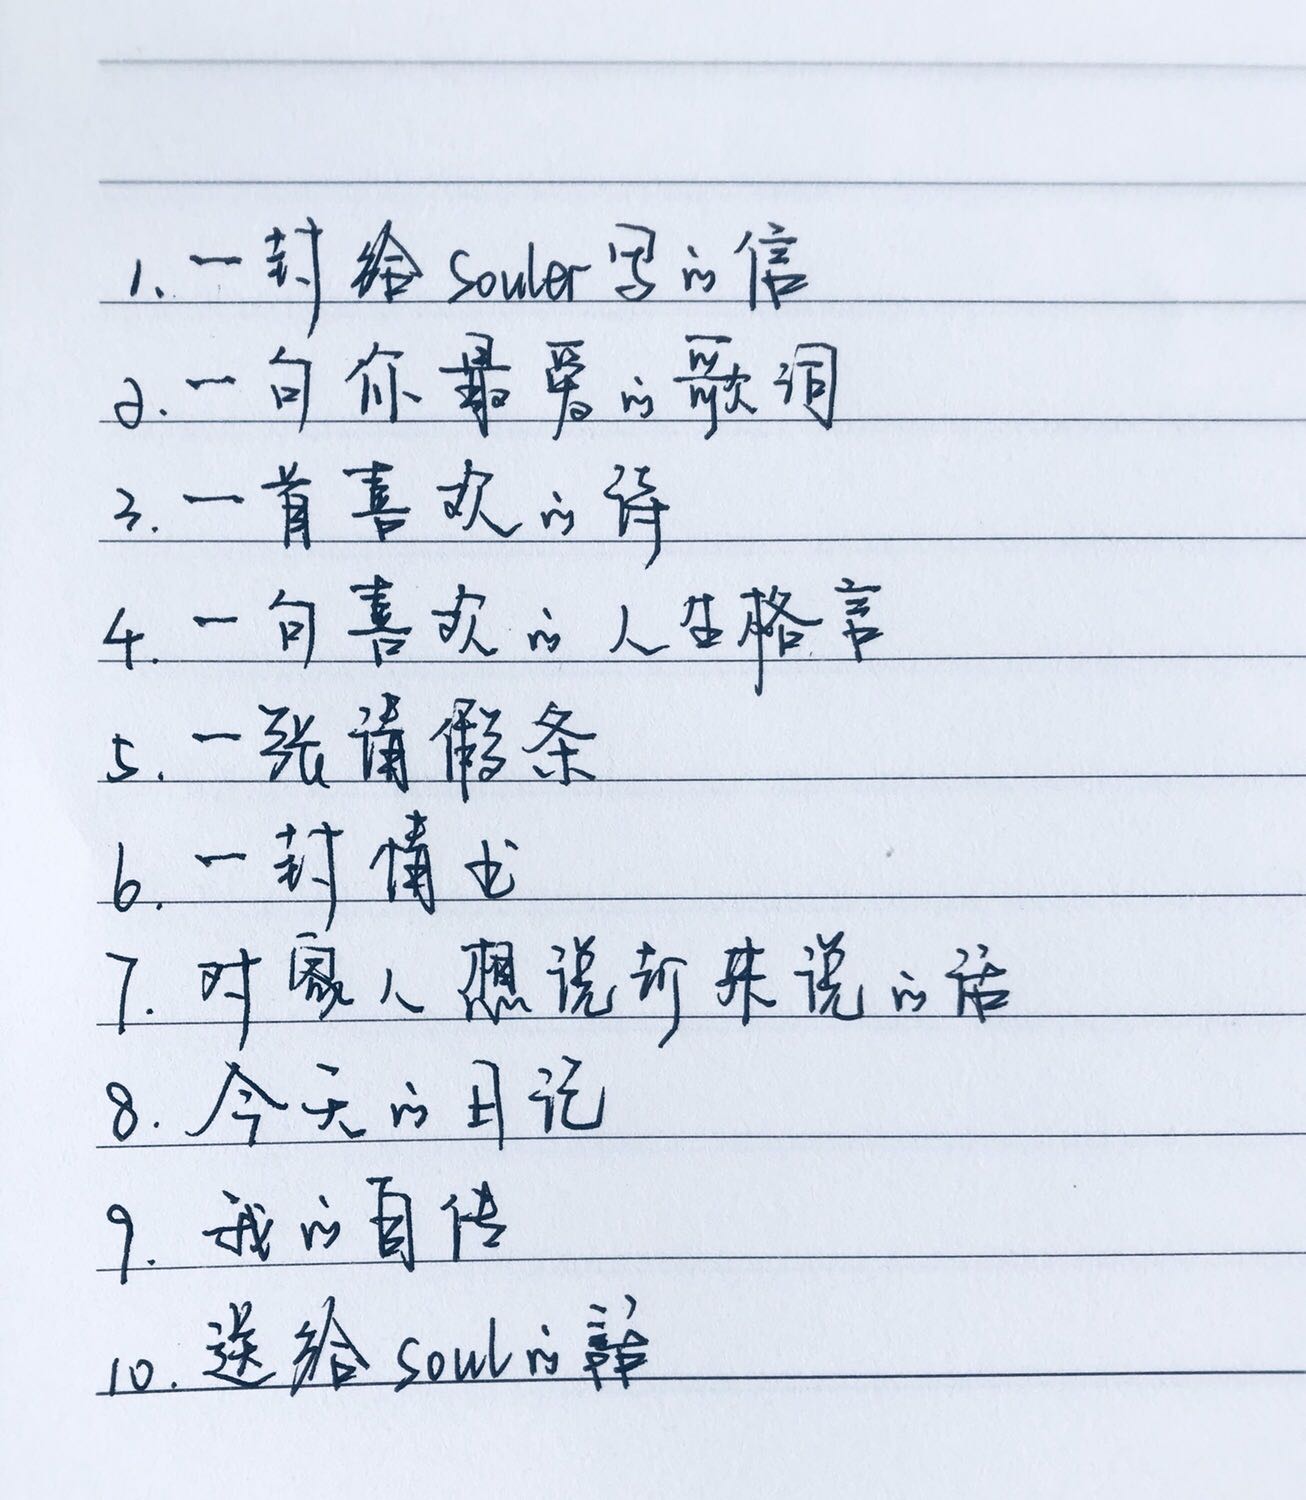 1. 一封给souler写的信
2. 一句你最爱的歌词
3. 一首喜欢的诗
4. 一句喜欢的人生格言
5. 一张请假条
6. 一封情书
7. 对家人想说却未说的话
8. 今天的日记
9. 我的自传
10. 送给soul的話